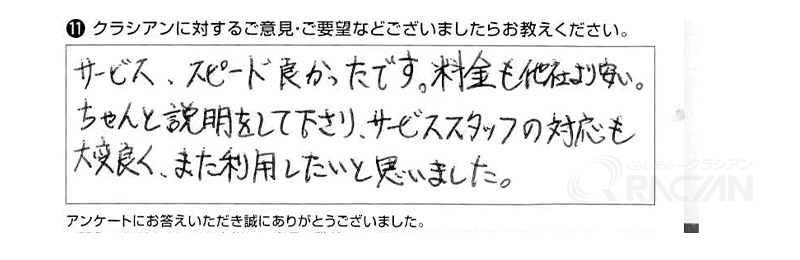 ⑪ クラシアンに対するご意見・ご要望などございましたらお教えください。
サービス、スピード良かったです。料金も他社より安い。
ちゃんと説明をして下さり、サービススタッフの対応も
大変良く、また利用したいと思いました。
くらし安心クラシアン
QRACIAN
アンケートにお答えいただき誠にありがとうございました。